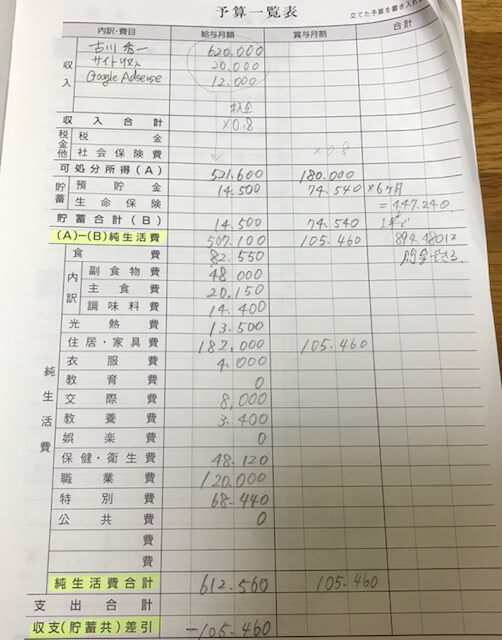 予算一覧表
立てた予算を書き入れ
内訳・費目 給与月額 賞与月割 合計
古川 620.000
サイト収入 20.000
Google Adsense 12.000
収入
税金
収入合計 ×0.8
税金他 税金
社会保険費 ×0.8
可処分所得(A) 521.600 180.000
貯蓄 預貯金 14.500 74.540 ×6ヶ月
生命保険 =447.240
貯蓄合計(B) 14.500 74.540 1年で
(A)−(B)純生活費 507.100 105.460 894.480は
食費 82.550 貯金できる.
内訳 副食物費 48.000
主食費 20.150
調味料費 14.400
光熱費 13.500
住居・家具費 182.000 105.460
衣服費 4.000
教育費 0
交際費 8,000
教養費 3.400
娯楽費 0
保健・衛生費 48.120
職業費 120.000
特別費 68.440
公共費 0
費
費
純生活費
純生活費合計 612.560 105.460
支出合計
収支(貯蓄共)差引 −105.460